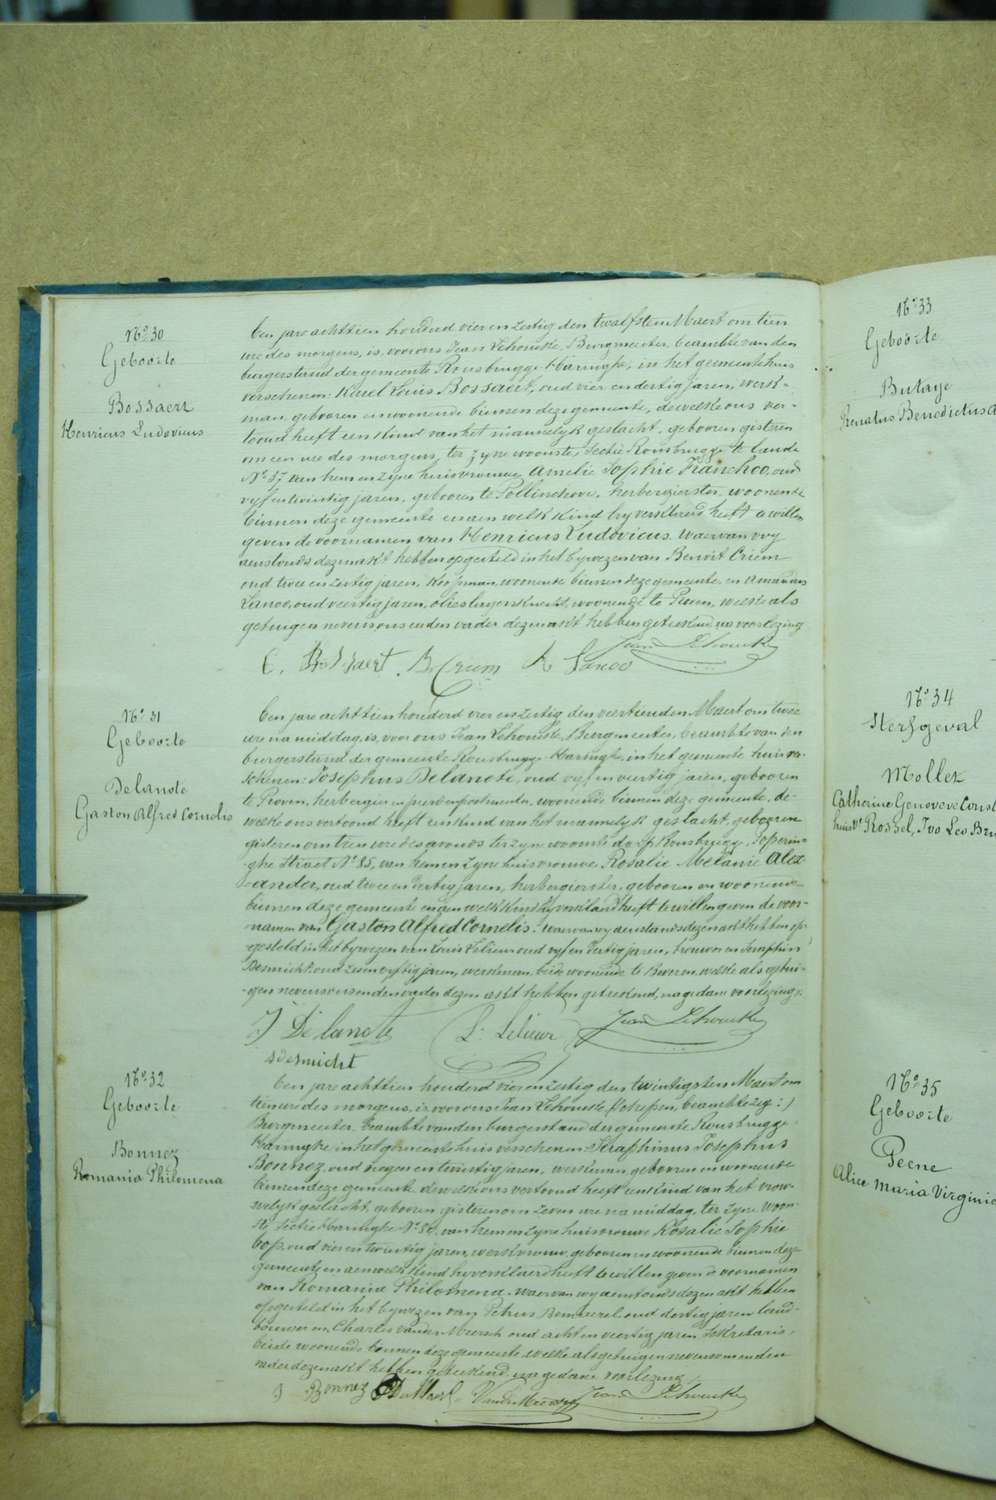 N.° 30
Geboorte
Bossaert
Henricus Ludovicus
Een jare achttien honderd vier en zestig den twalfsten Maert om tien
ure des morgens, is voor ons Jean Lehoucke, Burgmeester, beambte van den
burgerstand der gemeente Rousbrugge-Haringhe, in het gemeentehuis
verschenen: Karel Louis Bossaert, oud vier en dertig jaren, werk-
man, gebooren en woonende binnen deze gemeente, dewelke ons ver-
toond heeft een kind van het mannelyk geslacht, gebooren gisteren
om een ure des morgens, ter zyne woonste, sectie Rousbrugge te lande
N.° 87 van hem en zyne huisvrouwe Amelie Sophie Franchoo, oud
vyf en twintig jaren, gebooren te Pollinchove, herbergierster, woonende
binnen deze gemeente en aen welk kind hy verklaerd heeft te willen
geven de voornamen van Henricus Ludovicus. Waervan wy
aenstonds dezen akt hebben opgesteld in het bywezen van Benoit Criem
oud twee en zestig jaren, koopman, woonende binnen deze gemeente, en Amandus
Lanoo, oud veertig jaren, olieslagersknecht, woonende te Proven, welke als
getuigen nevens ons en den vader dezen akt hebben geteekend na voorlezing
Jean Lehoucke
C. Bossaert B. Criem A Lanoo
N.° 31
Geboorte
Delanote
Gaston Alfred Cornelis
Een jare achttien honderd vier en zestig den veertienden Maert om twee
ure na middag, is voor ons Jean Lehoucke, Burgmeester, beambte van den
burgerstand der gemeente Rousbrugge-Haringhe, in het gemeente huis ver-
schenen: Josephus Delanote, oud vyf en veertig jaren, gebooren
te Proven, herbergier en woonende binnen deze gemeente, de-
welke ons vertoond heeft een kind van het mannelyk geslacht, gebooren
gisteren om tien ure des avonds ter zyne woonste Rousbrugge, Poperin-
ghe straet N.° 85, van hem en zyne huisvrouwe Rosalie Melanie Alex-
ander, oud twee en dertig jaren, herbergierster, gebooren en woonende
binnen deze gemeente en aen welk kind hy verklaerd heeft te willen geven de voor-
namen van Gaston Alfred Cornelis. Waervan wy aenstonds dezen akt hebben op-
gesteld in het bywezen van Louis Lelieur oud vyf en zestig jaren, brouwer en Seraphin
Desmicht oud zeven en vyftig jaren, werkman, beide woonende te Beveren, welke als getui-
gen nevens ons en den vader dezen akt hebben geteekend, na gedane voorlezing.
J Delanote L. Lelieur Jean Lehoucke
S desmicht
N.° 32
Geboorte
Bonnez
Romania Philomena
Een jare achttien honderd vier en zestig den twintigsten Maert om
tien ure des morgens, is voor ons Jean Lehoucke
Burgmeester, beambte van den burgerstand der gemeente Rousbrugge-
Haringhe in het gemeente huis verschenen Seraphinus Josephus
Bonnez, oud negen en twintig jaren, werkman, gebooren en woonende
binnen deze gemeente, dewelke ons vertoond heeft een kind van het vrou-
welyk geslacht, gebooren gisteren om zeven ure na middag, ter zyne woon-
ste, sectie Haringhe N.° 80, van hem en zyne huisvrouwe Rosalie Sophie
Top, oud vier en twintig jaren, werkvrouw, gebooren en woonende binnen deze
gemeente en aen welk kind hy verklaerd heeft te willen geven de voornamen
van Romania Philomena. Waervan wy aenstonds dezen akt hebben
opgesteld in het bywezen van Petrus oud dertig jaren, land-
bouwer en Charles vander Meersch oud acht en veertig jaren, sekretaris,
beide woonende binnen deze gemeente welke als getuigen nevens ons en den
vader dezen akt hebben geteekend na gedane voorlezing
S Bonnez VanderMeersch Jean Lehoucke
N.° 33
Geboorte
Butaye
Renatus Benedictus
N.° 34
Sterfgeval
Mollez
Catherine Genoveve Const
huisv.e Rossel, Ivo Leo Ben
N.° 35
Geboorte
Peene
Alice Maria Virginie